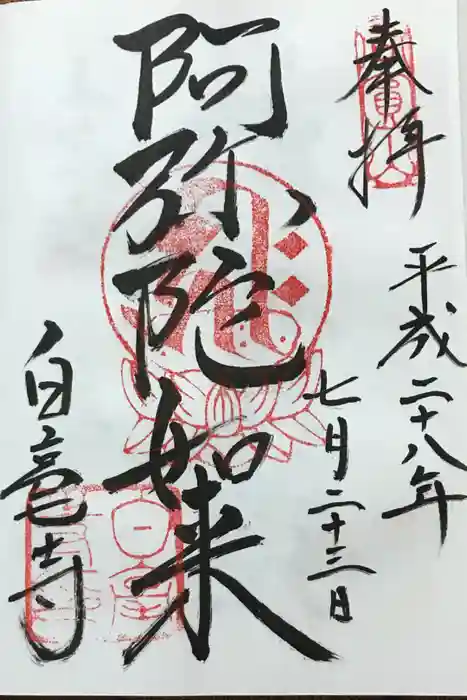 奉拝
平成二十八年
七月二十三日
阿弥陀如来
白竜寺